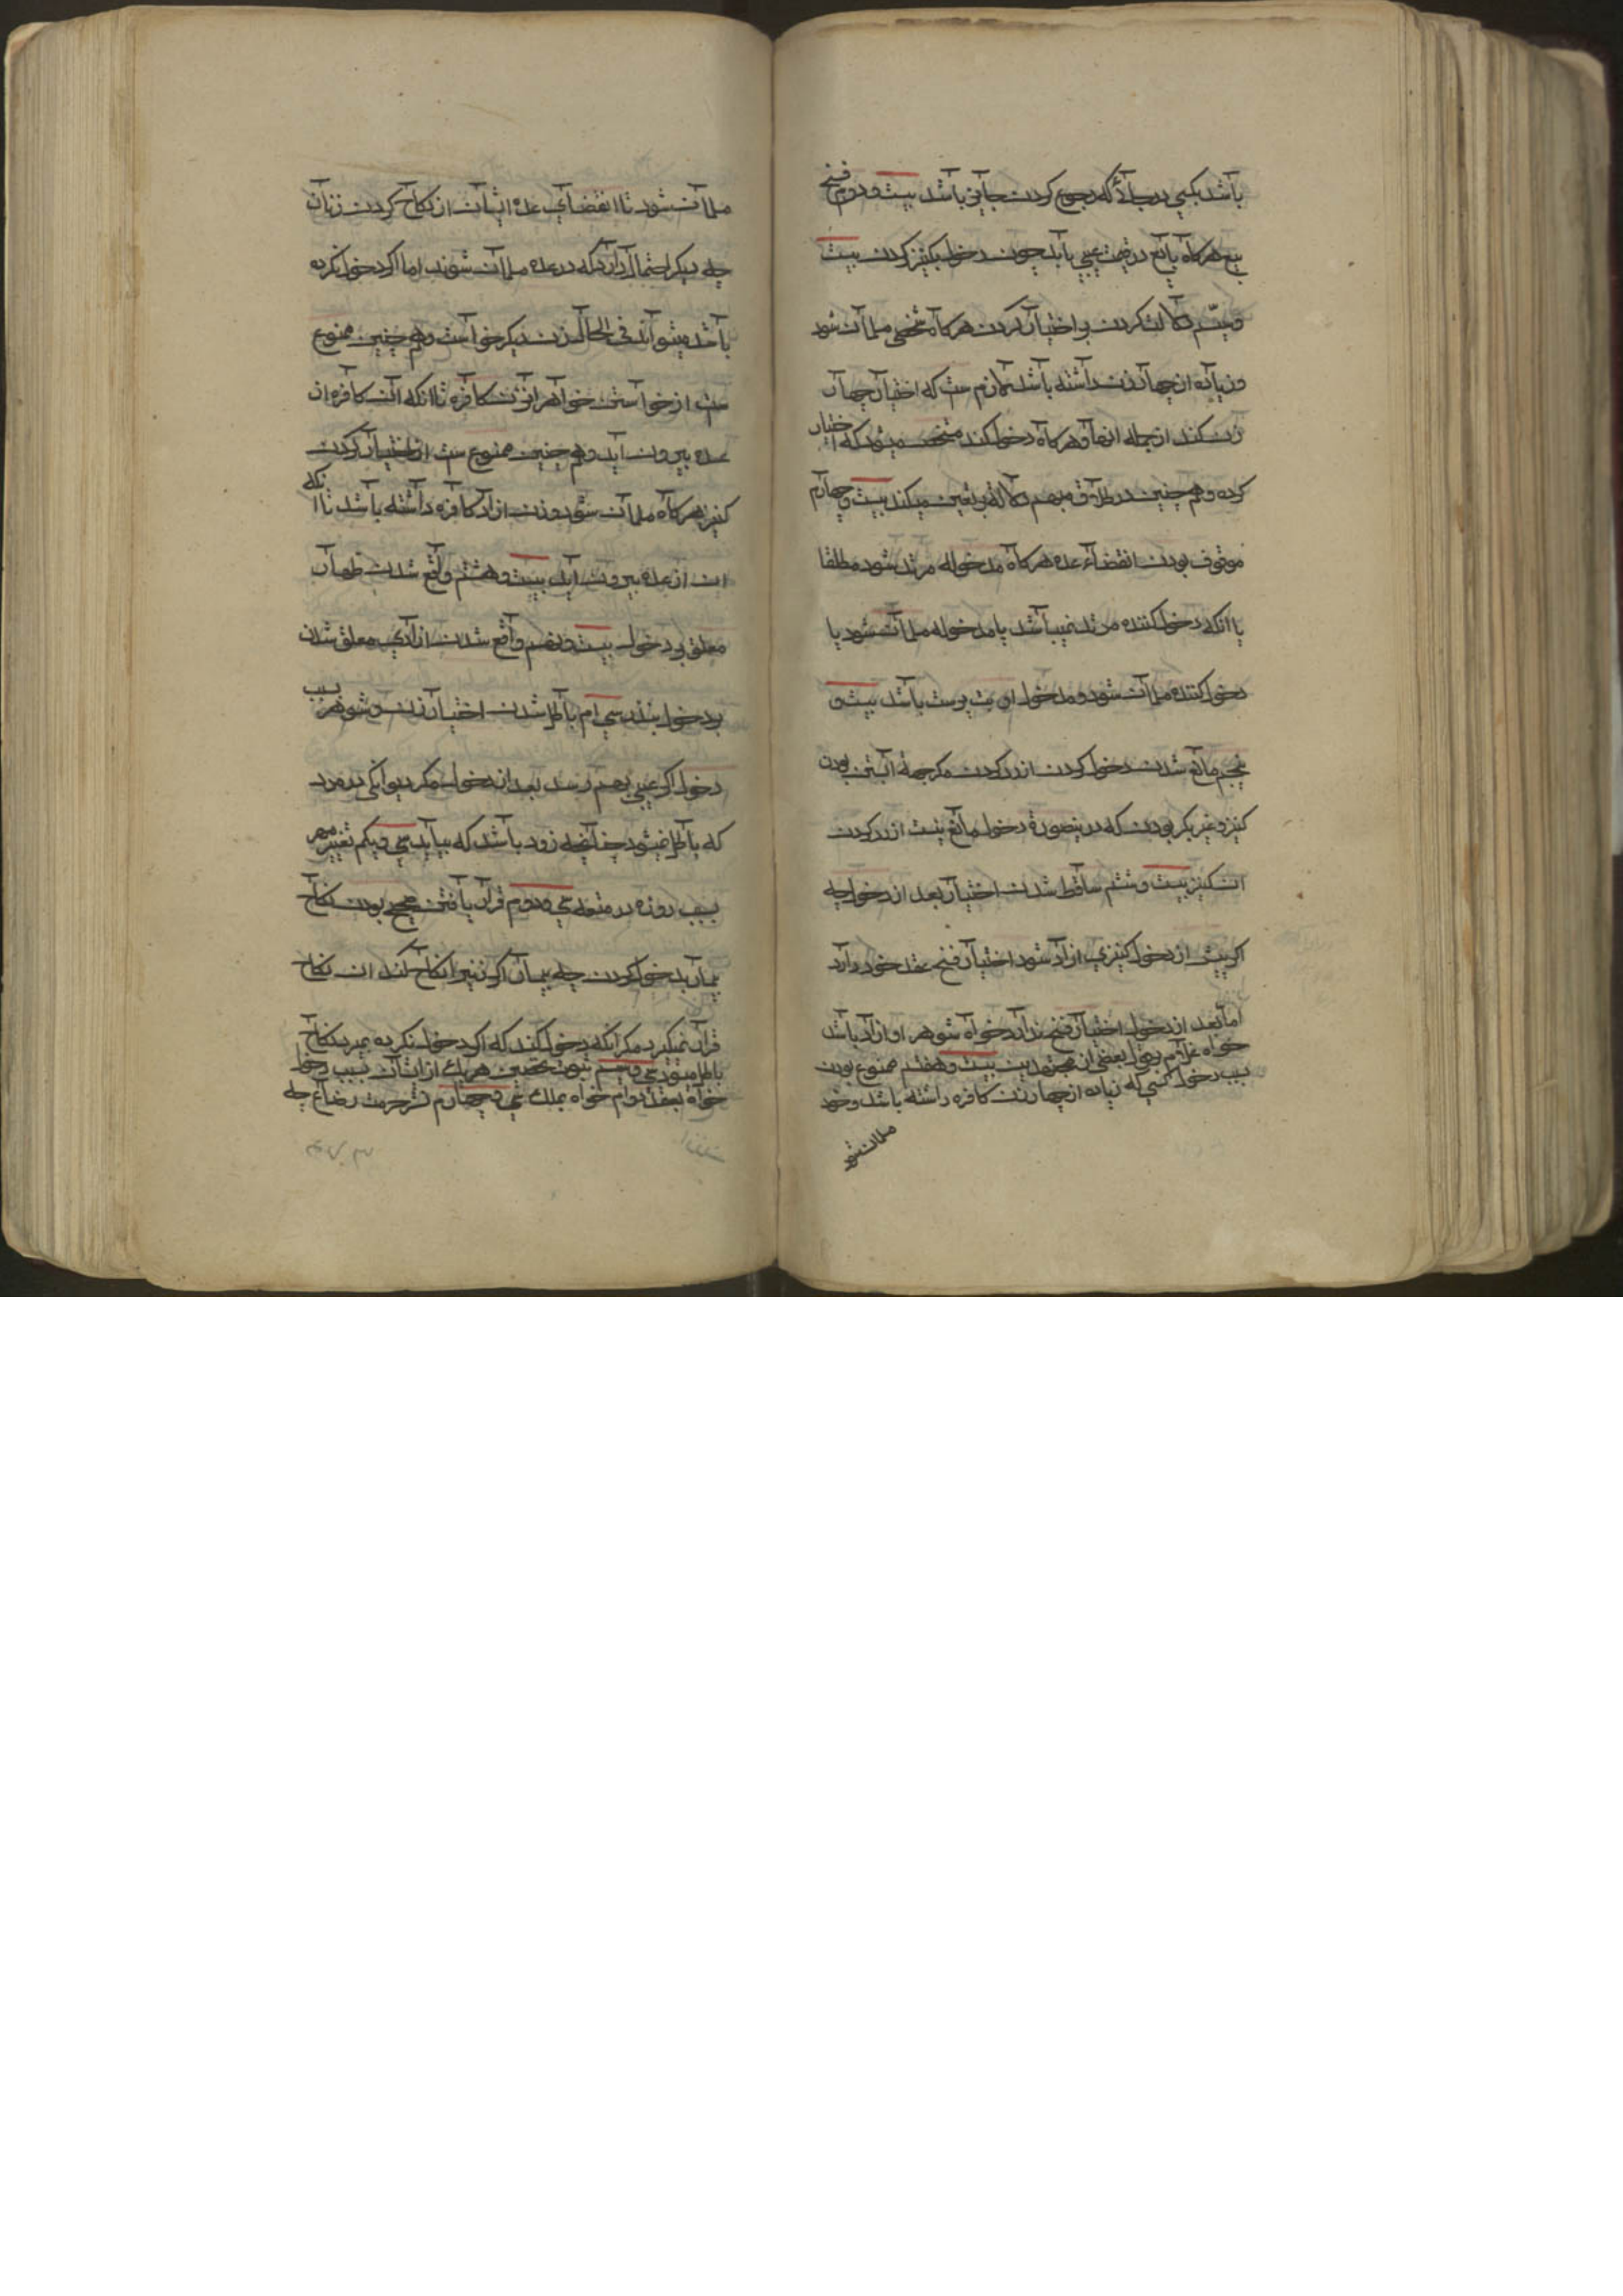 باشد بکسی در جائی که رجوع کردن جایز باشد بیست و دوم فسخ
بیع هرکاه بایع در قیمت عیبی یابد چون دخول بکنیز کردن بیست
و سیّم دلالت کردن بر اختیار کردن هرکاه شخصی مسلمان شود
و زیاده از چهار زن داشته باشد لازم ست که اختیار چهار
زن کند از جمله انها و هرکاه دخول کند مشخص میشود که اختیار
کرده و هم چنین در طلاق مبهم دلالة بر تعین میکند بیست و چهارم
موقوف بودن انقضاء عده هرکاه مدخوله مرتد شود مطلقا
یا انکه دخول کننده مرتد نمیباشد یا مدخوله مسلمان شود یا
دخول کننده مسلمان شود و مدخول او بت پرست باشد بیست و
پنجم مانع شدن دخول کردن از رد کردن مکر بجهة ابستن بودن
کنیز و غیر بکر بودن که درینصورة دخول مانع نیست از رد کردن
ان کنیز بیست و ششم ساقط شدن اختیار بعد از دخول چه
اکر پیش از دخول کنیزی ازاد شود اختیار فسخ عقد خود دارد
اما بعد از دخول اختیار فسخ ندارد خواه شوهر او ازاد باشد
خواه غلام بقول بعضی از مجتهدین بیست و هفتم ممنوع بودن
بسبب دخول کسی که زیاده از چهار زن کافره داشته باشد و خود
مسلمان شود
مسلمان شود تا انقضای عده ایشان از نکاح کردن زنان
چه دیکر احتمال دارد که در عده مسلمان شوند اما اکر دخول نکرده
باشد میتواند فی الحال زن دیکر خواست و هم چنین ممنوع
ست از خواستن خواهر ان زن کافره تا انکه ان کافره از
عده بیرون اید و هم چنین ممنوع ست از اختیار کردن
کنیز هرکاه مسلمان شود و زن ازاد کافره داشته باشد تا انکه
ان از عده بیرون اید بیست و هشتم واقع شدن ظهار
معلق بر دخول بیست و نهم واقع شدن ازادی معلق شدن
بر دخول بنذر سی ام باطل شدن اختیار زن و شوهر بسبب
دخول اکر عیبی بهم رسد بعد از دخول مکر دیوانکی در مرد
که باطل نمیشود چنانچه زود باشد که بیاید سی و یکم تغییر مهر
بسبب روزه در متعه سی و دوم قرار یافتن صحیح بودن نکاح
بیمار بدخول کردن چه بیمار اکر زنیرا نکاح کند ان نکاح
قرار نمیکیرد مکر انکه دخول کند که اکر دخول نکرده بمیرد نکاح
باطل میشود سی و سیم ثبوت تحصین هر یک از ایشان بسبب دخول
خواه بعقد دوام خواه بملک سی و چهارم نشر حرمت رضاع چه